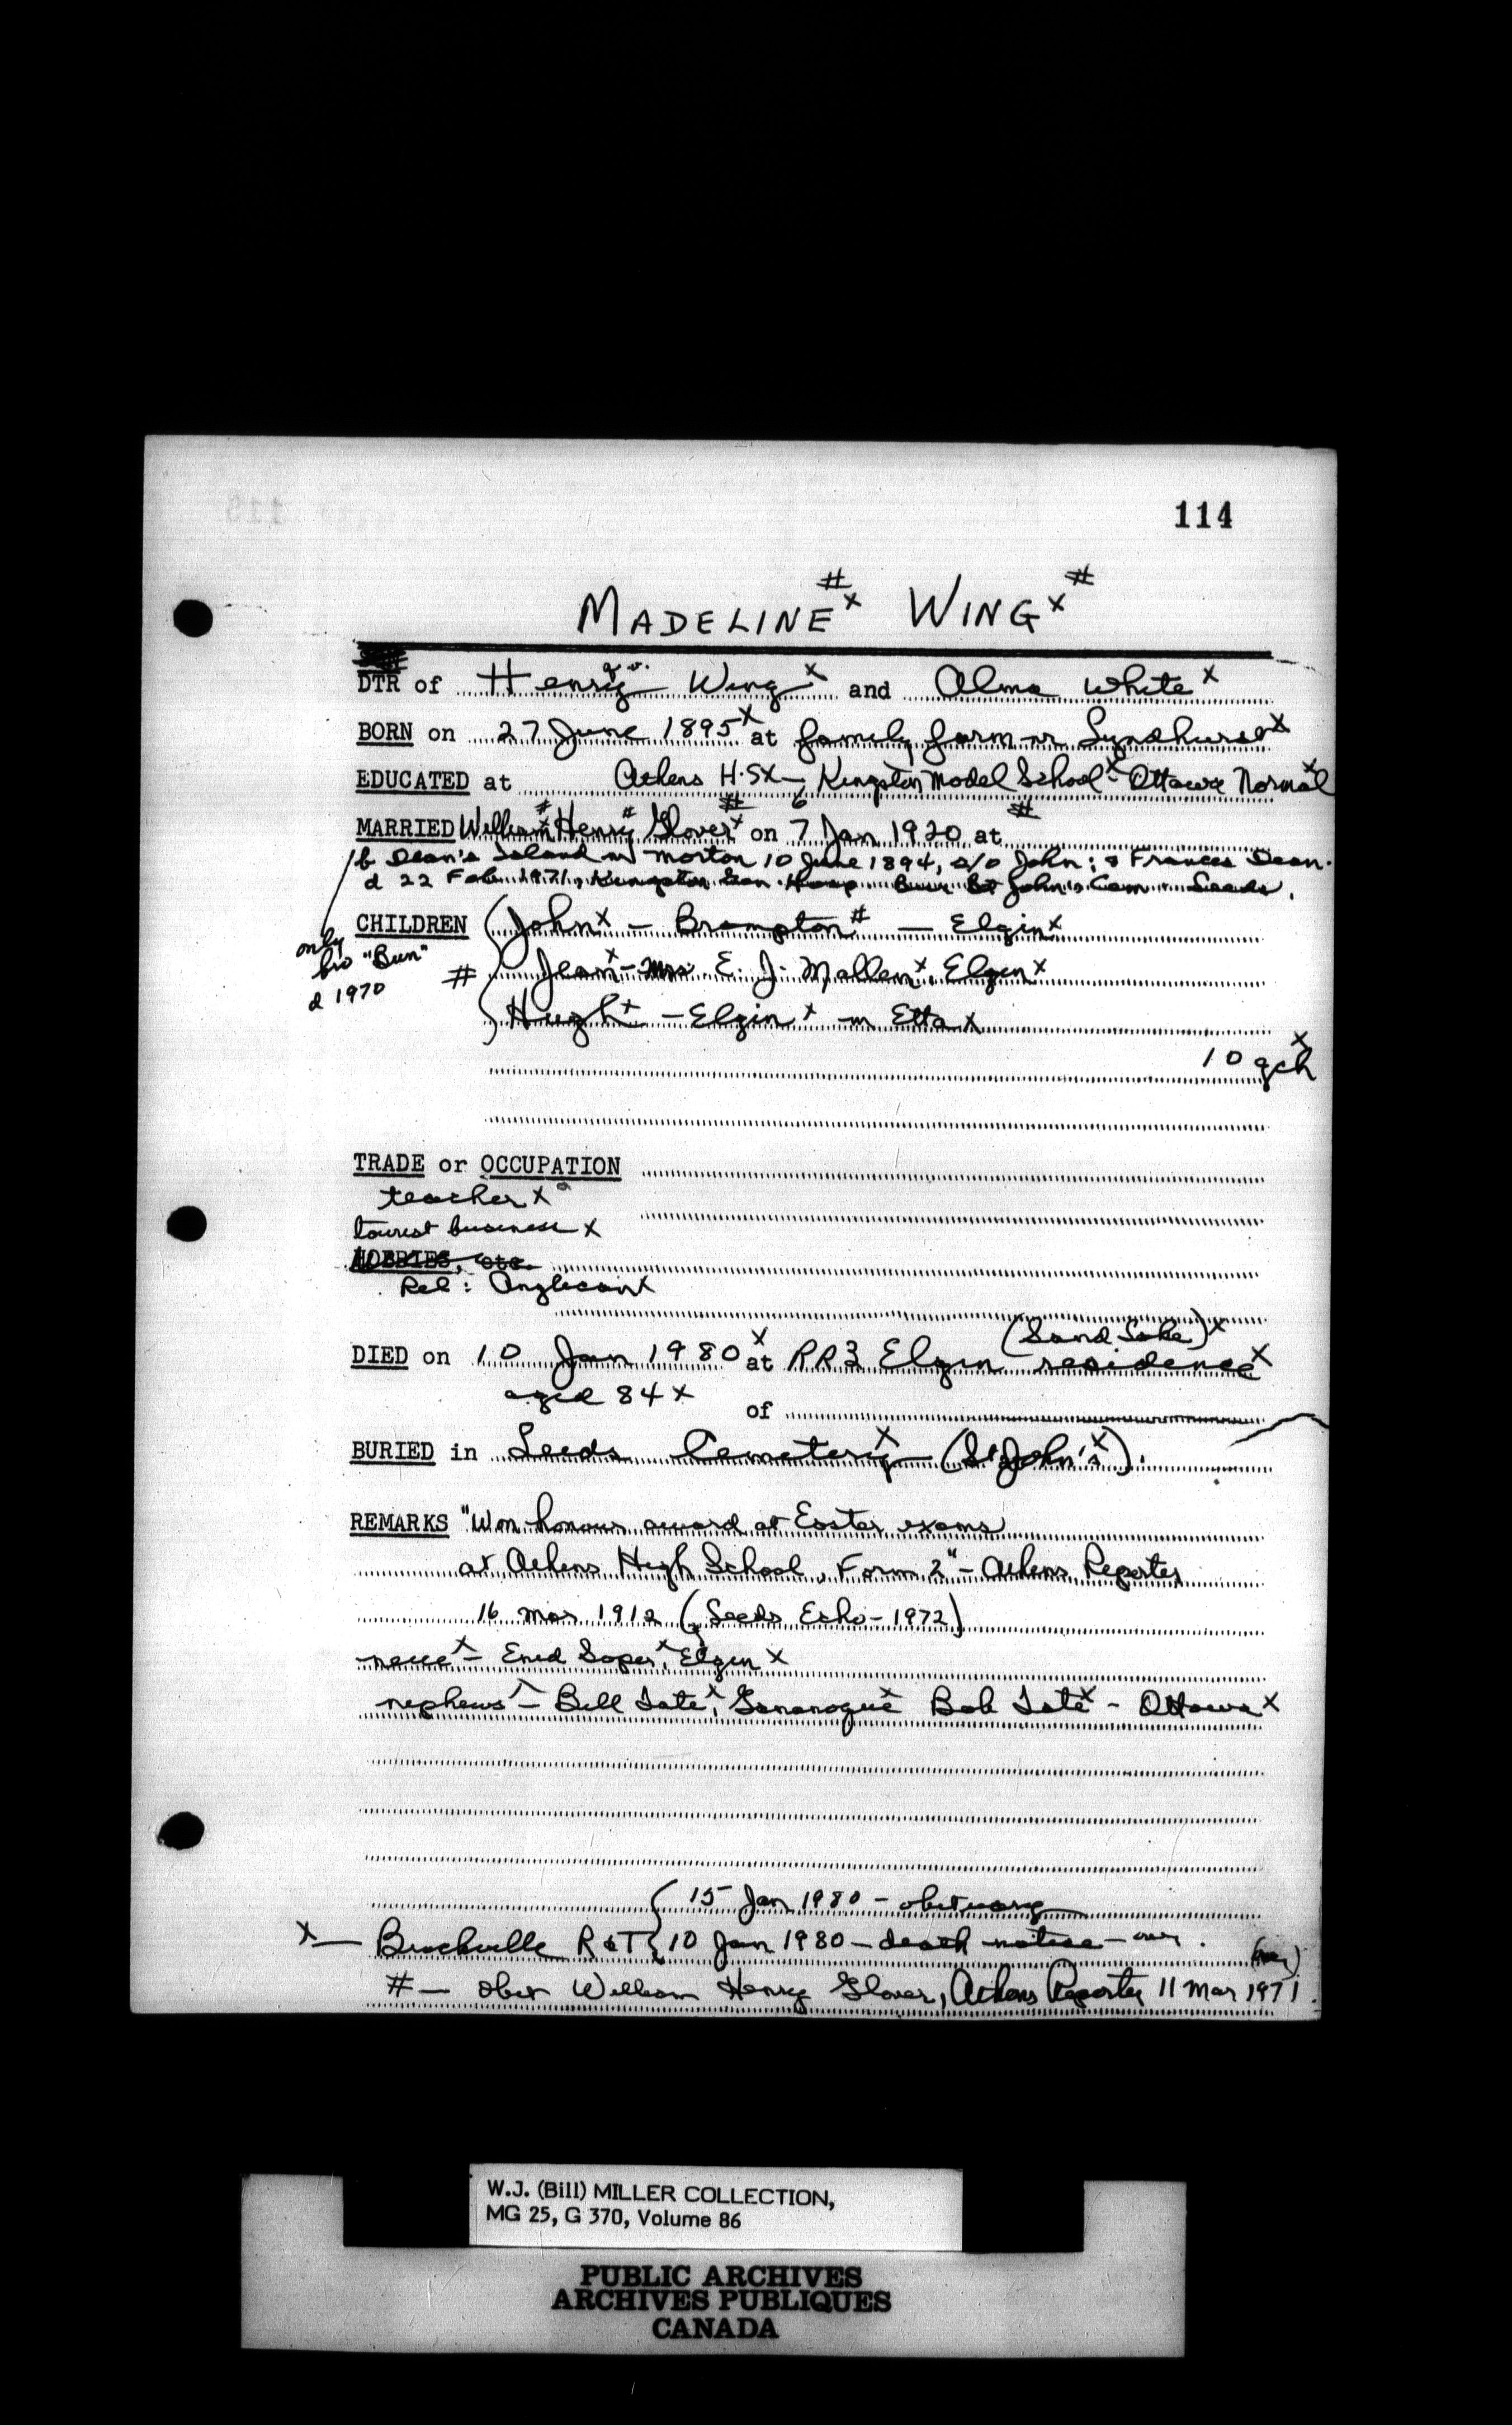 114
# #
MADELINE x WING x
q.v.
DTR of Henry Wing x and Alma White x
BORN on 27 June 1895 x at family farm nr Lyndhurst x
EDUCATED at Athens H.S x - Kingston Model School x - Ottawa Normal x
# # # 6 #
MARRIED William x Henry Glover x on 7 Jan 1920 at
b Dean's Island nr Morton 10 June 1894, s/o John & Frances Dean.
d 22 Feb 1971, Kingston Gen. Hosp Bur St John's Cem Leeds.
only
bro "Bun"
d 1970
CHILDREN John x - Brampton # - Elgin x
# Jean x - Mrs. E. J. Mallen x, Elgin x
Hugh x - Elgin x - m Etta x
10 gch x
TRADE or OCCUPATION
teacher x
tourist business x
HOBBIES, etc.
Rel: Anglican x
(Sand Lake) x
DIED on 10 Jan 1980 x at RR3 Elgin residence x
aged 84 x of
BURIED in Leeds Cemetery x (St John's x).
REMARKS "Won honour award at Easter exams
at Athens High School, Form 2" - Athens Reporter
16 Mar 1912 (Leeds Echo - 1972)
niece x - Enid Soper x, Elgin x
nephews x - Bill Tate x, Gananoque x Bob Tate x - Ottawa x
15 Jan 1980 - obituary
x - Brockville R & T 10 Jan 1980 - death notice - over.
# - obit William Henry Glover, Athens Reporter 11 Mar 1971.
W.J. (Bill) MILLER COLLECTION,
MG 25, G 370, Volume 86
PUBLIC ARCHIVES
ARCHIVES PUBLIQUES
CANADA